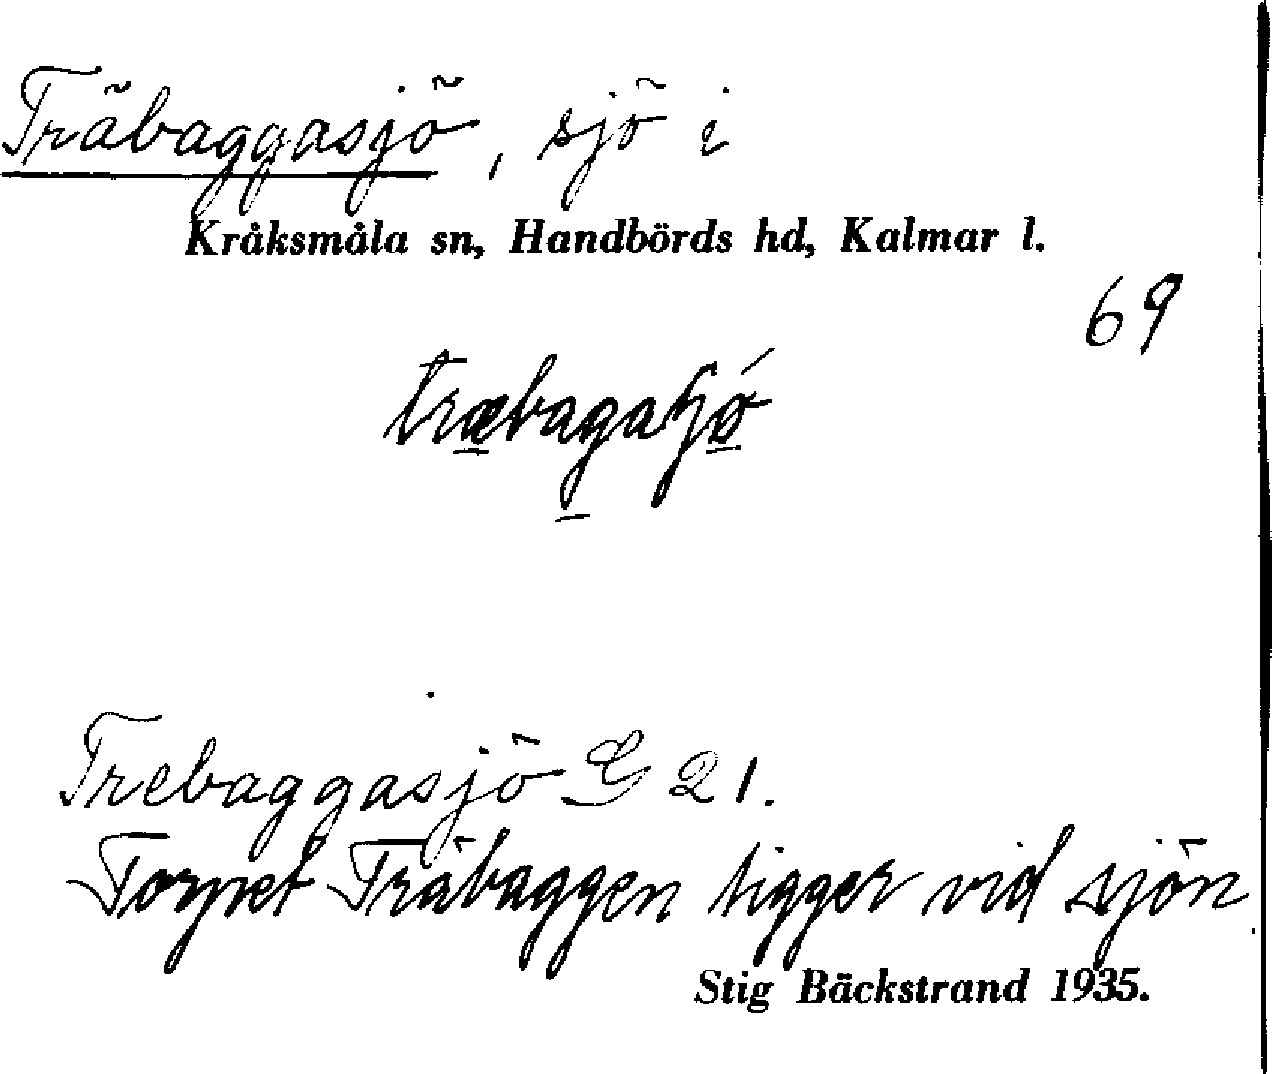 Träbaggasjö, sjö i
Kråksmåla sn, Handbörds hd, Kalmar l.
69
Trebaggasjö G 21.
Torpet Träbaggen ligger vid sjön
Stig Bäckstrand 1935.